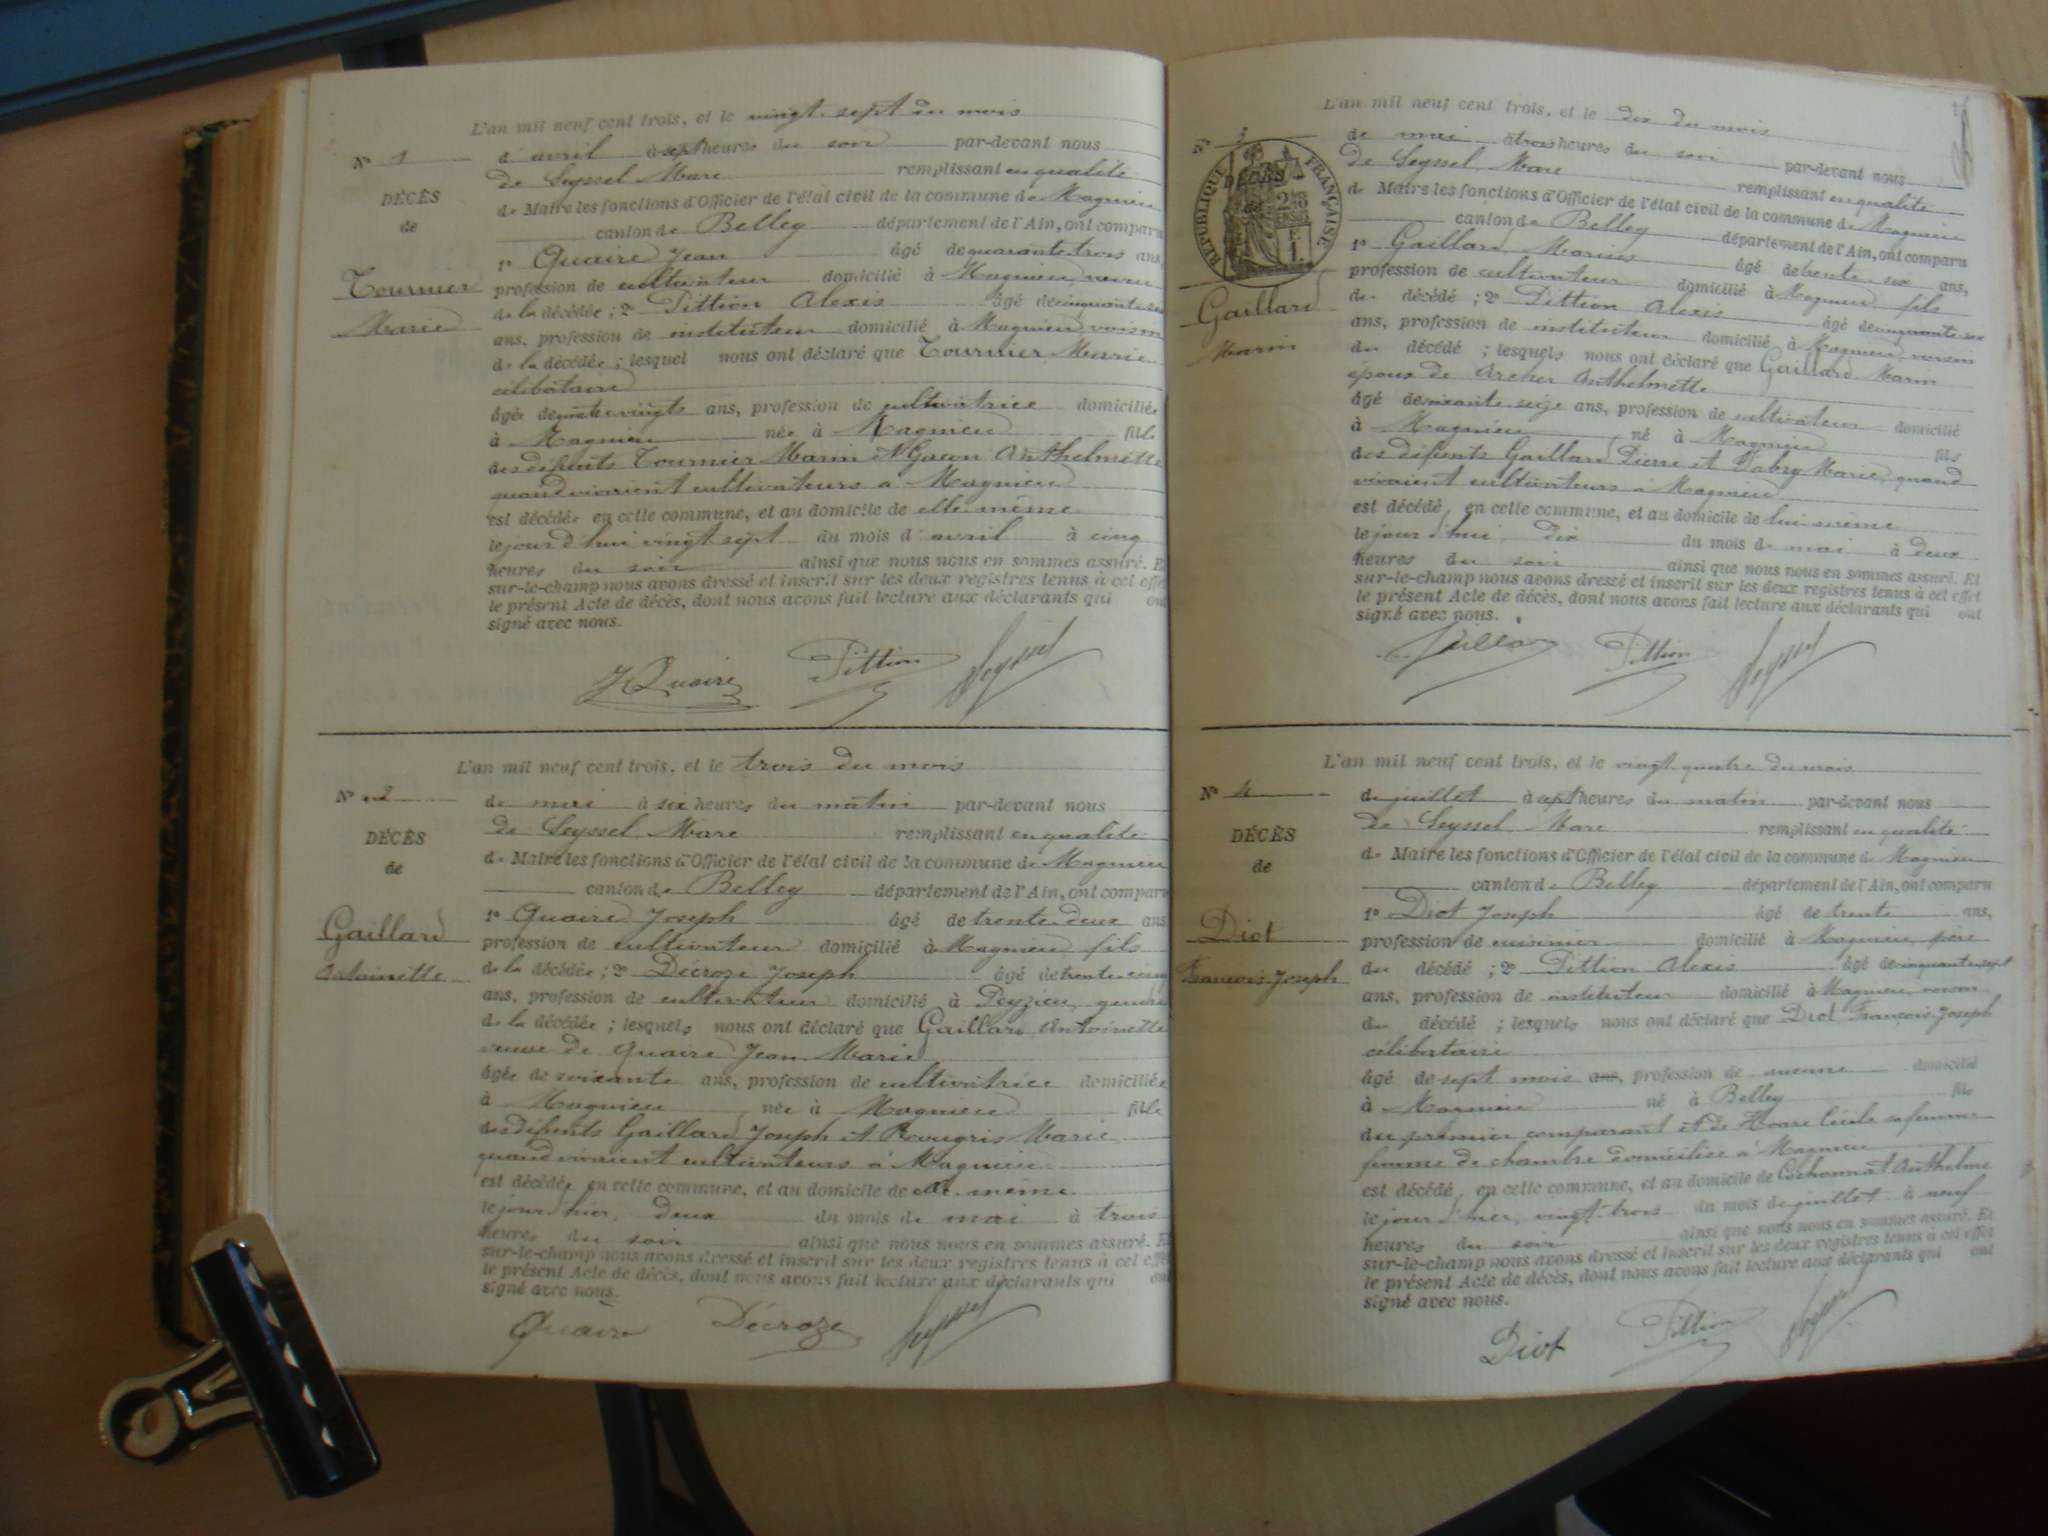 L'an mil neuf cent trois, et le vingt sept du mois
N° 1 d'avril à sept heures du soir par-devant nous
de Seyssel Marc remplissant en qualité
DÉCÈS
de Maire les fonctions d'Officier de l'état civil de la commune de Magnieu
de
canton de Belley département de l'Ain, ont comparu
1° Quaire Jean âgé de quarante trois ans,
Tournier
profession de cultivateur domicilié à Magnieu, neveu
de la décédée ; 2° Pittion Alexis âgé de cinquante six
Marie
ans, profession de instituteur domicilié à Magnieu, voisin
de la décédée ; lesquel nous ont déclaré que Tournier Marie
célibataire
âgée de quatre vingts ans, profession de cultivatrice domiciliée
à Magnieu née à Magnieu fille
des défunts Tournier Marin et Anthelmette
quand vivaient cultivateurs à Magnieu
est décédée en cette commune, et au domicile de elle même
le jour d'hui vingt sept du mois d'avril à cinq
heures du soir ainsi que nous nous en sommes assuré. Et
sur-le-champ nous avons dressé et inscrit sur les deux registres tenus à cet effet
le présent Acte de décès, dont nous avons fait lecture aux déclarants qui ont
signé avec nous.
J Quaire Pittion Seyssel
L'an mil neuf cent trois, et le trois du mois
N° 2 de mai à six heures du matin par-devant nous
de Seyssel Marc remplissant en qualité
DÉCÈS
de Maire les fonctions d'Officier de l'état civil de la commune de Magnieu
de
canton de Belley département de l'Ain, ont comparu
1° Quaire Joseph âgé de trente deux ans
Gaillard
profession de cultivateur domicilié à Magnieu, fils
Antoinette
de la décédée ; 2° Décroze Joseph âgé de trente cinq
ans, profession de cultivateur domicilié à Peyzieu, gendre
de la décédée ; lesquels nous ont déclaré que Gaillard Antoinette
veuve de Quaire Jean Marie
âgée de soixante ans, profession de cultivatrice domiciliée
à Magnieu née à Magnieu fille
des défunts Gaillard Joseph et Marie
quand vivaient cultivateurs à Magnieu
est décédée en cette commune, et au domicile de elle même
le jour d'hier, deux du mois de mai à trois
heures du soir ainsi que nous nous en sommes assuré. Et
sur-le-champ nous avons dressé et inscrit sur les deux registres tenus à cet effet
le présent Acte de décès, dont nous avons fait lecture aux déclarants qui ont
signé avec nous.
Quaire Décroze Seyssel
L'an mil neuf cent trois, et le dix du mois
N° 3 de mai à trois heures du soir par-devant nous
de Seyssel Marc remplissant en qualité
RÉPUBLIQUE FRANÇAISE
DÉCÈS
de Maire les fonctions d'Officier de l'état civil de la commune de Magnieu
canton de Belley département de l'Ain, ont comparu
1° Gaillard Marius âgé de trente six ans,
profession de cultivateur domicilié à Magnieu fils
Gaillard
du décédé ; 2° Pittion Alexis âgé de cinquante six
ans, profession de instituteur domicilié à Magnieu, voisin
Marin
du décédé ; lesquels nous ont déclaré que Gaillard Marin
époux de Archer Anthelmette
âgé de soixante seize ans, profession de cultivateur domicilié
à Magnieu né à Magnieu fils
des défunts Gaillard Pierre et Fabry Marie, quand
vivaient cultivateurs à Magnieu
est décédé en cette commune, et au domicile de lui même
le jour d'hui, dix du mois de mai à deux
heures du soir ainsi que nous nous en sommes assuré. Et
sur-le-champ nous avons dressé et inscrit sur les deux registres tenus à cet effet
le présent Acte de décès, dont nous avons fait lecture aux déclarants qui ont
signé avec nous.
Gaillard Pittion Seyssel
L'an mil neuf cent trois, et le vingt quatre du mois
N° 4 de juillet à sept heures du matin par-devant nous
de Seyssel Marc remplissant en qualité
DÉCÈS
de Maire les fonctions d'Officier de l'état civil de la commune de Magnieu
de
canton de Belley département de l'Ain, ont comparu
1° Diot Joseph âgé de trente ans,
Diot
profession de cuisinier domicilié à Magnieu, père
François Joseph
du décédé ; 2° Pittion Alexis âgé de cinquante sept
ans, profession de instituteur domicilié à Magnieu, voisin
du décédé ; lesquels nous ont déclaré que Diot François Joseph
célibataire
âgé de sept mois ans, profession de aucune domicilié
à Magnieu né à Belley fils
du premier comparant et de Cécile sa femme
femme de chambre domiciliée à Magnieu
est décédé en cette commune, et au domicile de Cochonnat Anthelme
le jour d'hier, vingt trois du mois de juillet à neuf
heures du soir ainsi que nous nous en sommes assuré. Et
sur-le-champ nous avons dressé et inscrit sur les deux registres tenus à cet effet
le présent Acte de décès, dont nous avons fait lecture aux déclarants qui ont
signé avec nous.
Diot Pittion Seyssel